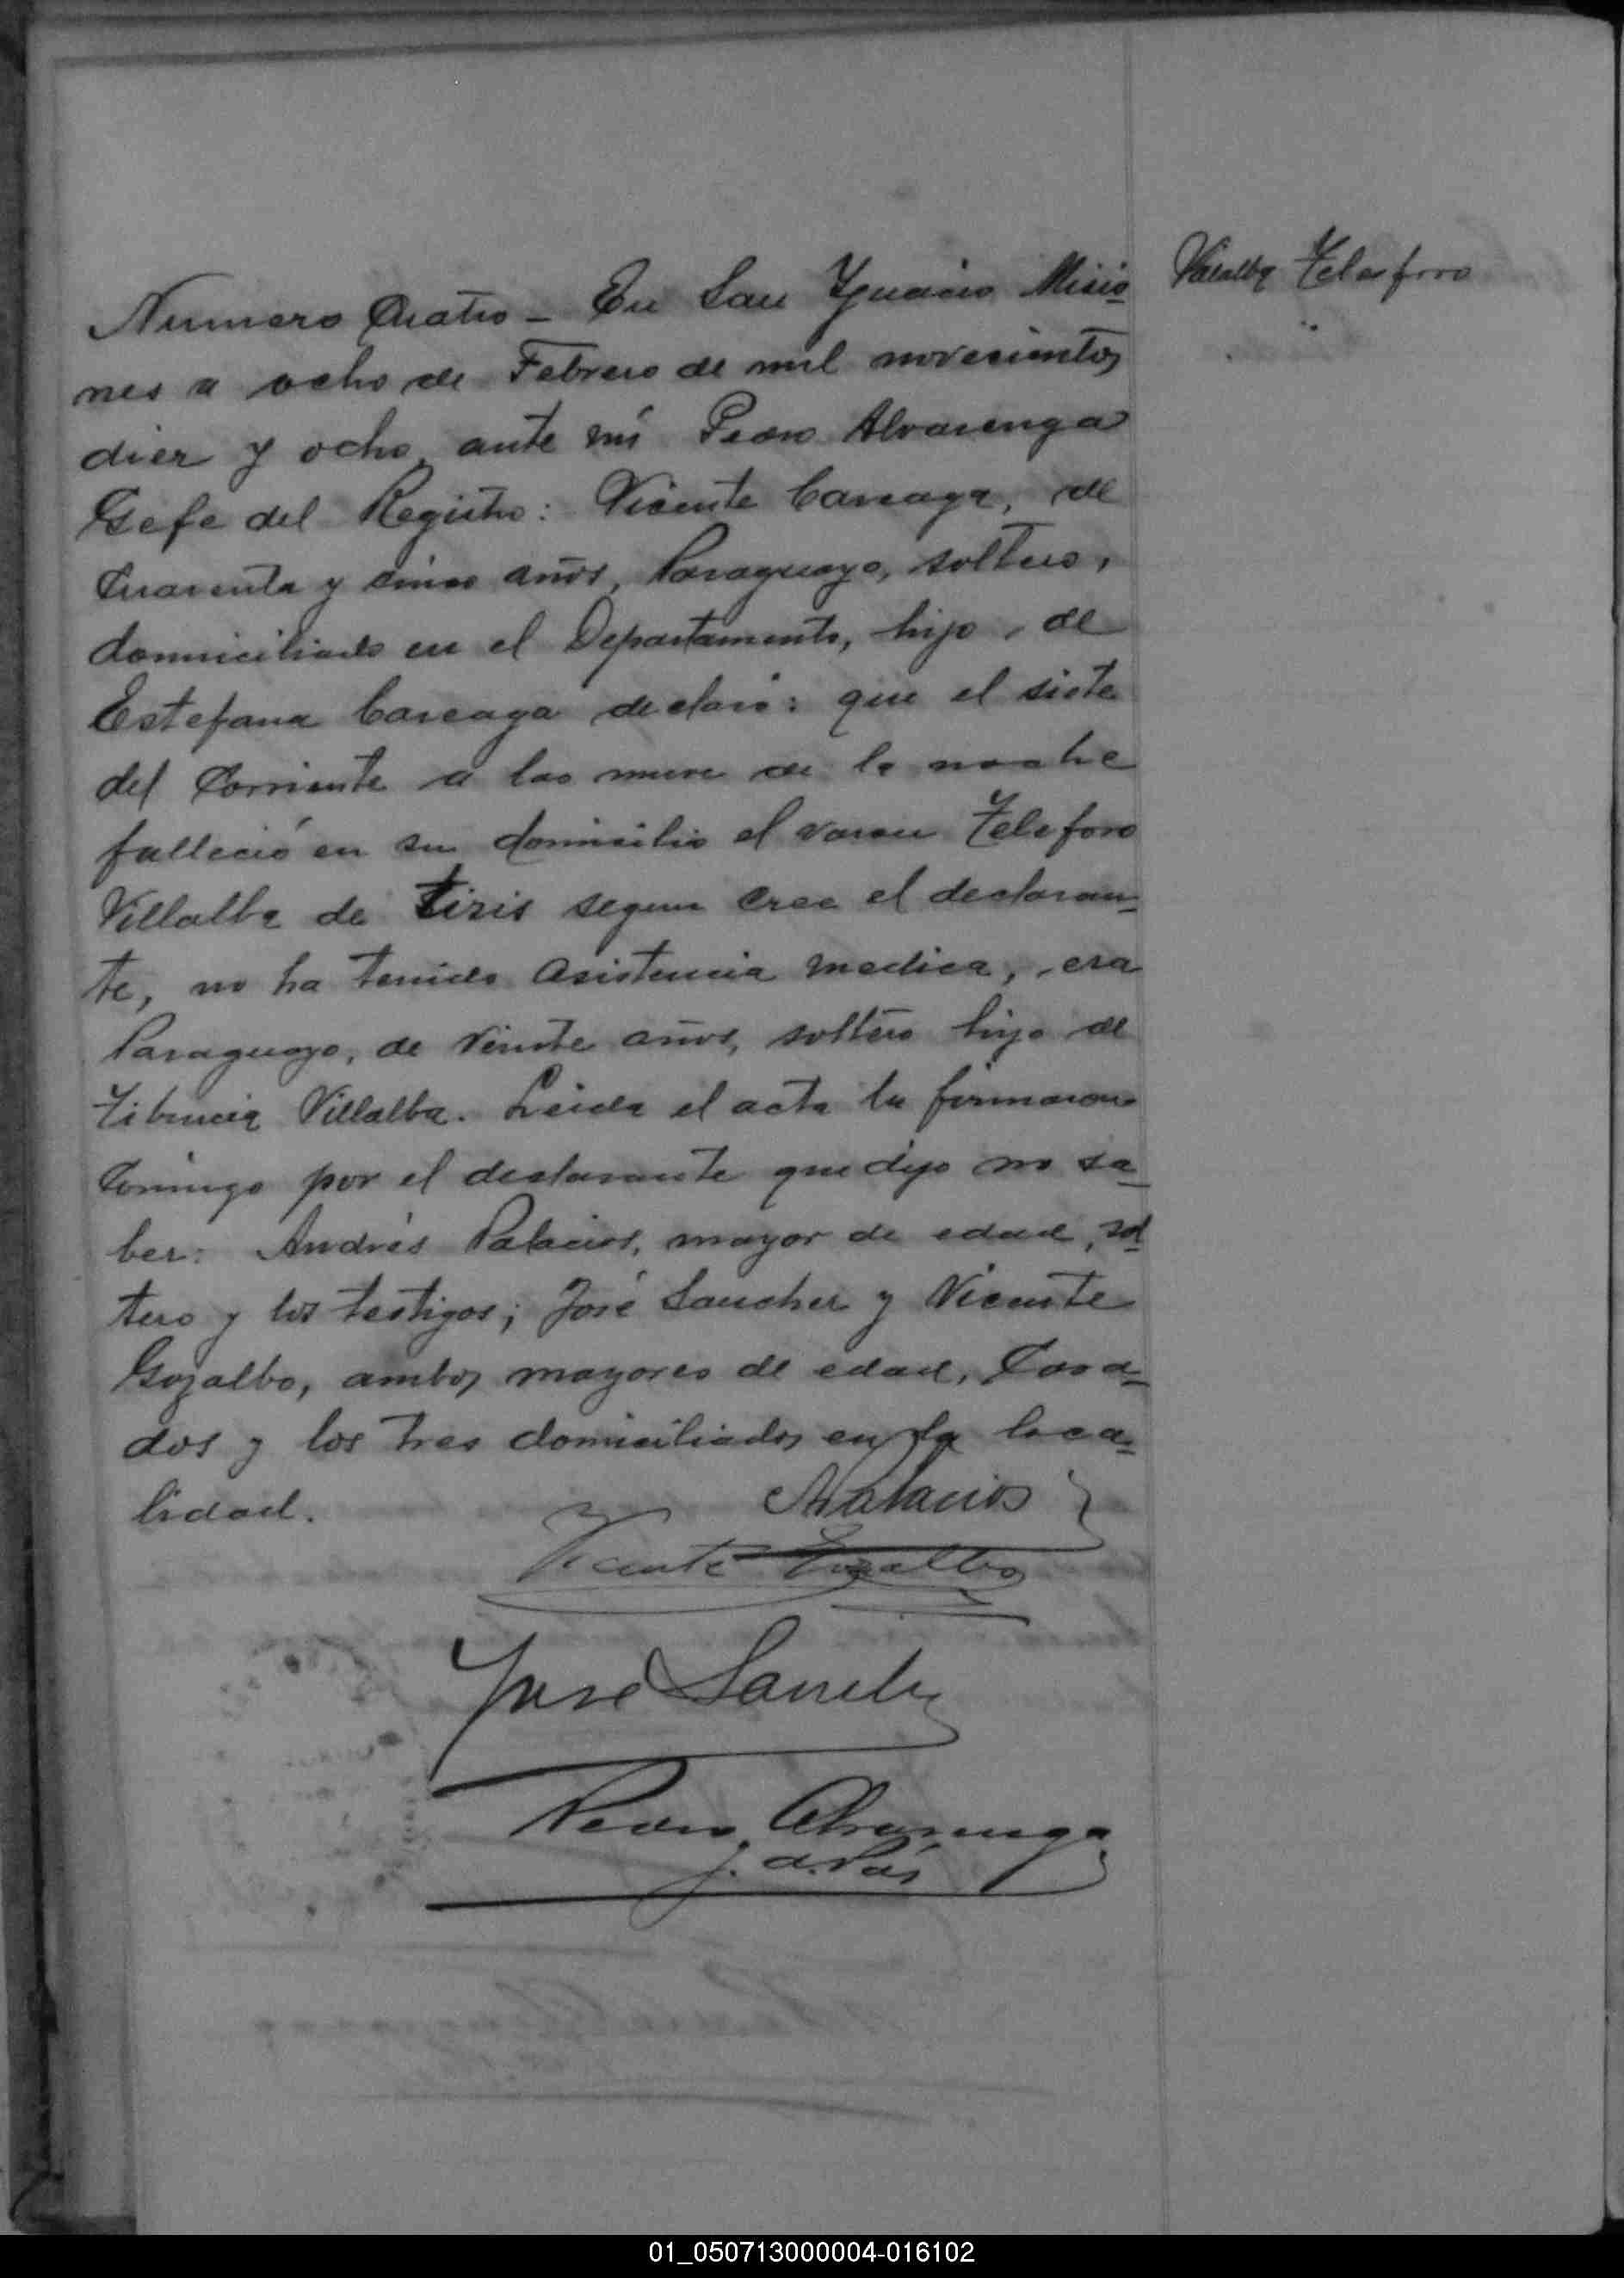 Numero Cuatro - En San Ygnacio Misio-
nes a ocho de Febrero de mil novecientos
diez y ocho, ante mí Pedro Alvarenga
Gefe del Registro: Vicente Careaga, de
Cuarenta y cinco años, Paraguayo, soltero,
domiciliado en el Departamento, hijo, de
Estefana Careaga declaró: que el siete
del Corriente a las nueve de la noche
falleció en su domicilio el varon Telesforo
Villalba de tisis segun cree el declaran-
te, no ha tenido asistencia medica, era
Paraguayo, de veinte años, soltero hijo de
Tiburcia Villalba. Leida el acta la firmaron
Conmigo por el declarante que dijo no sa-
ber: Andrés Palacios, mayor de edad, sol-
tero y los testigos; José Sanchez y Vicente
Gozalbo, ambos mayores de edad, Casa-
dos y los tres domiciliados en la loca-
lidad.
APalacios
Vicente Gozalbo
José Sanchez
Pedro Alvarenga
J. de Paz
Villalba Telesforo
01_050713000004-016102